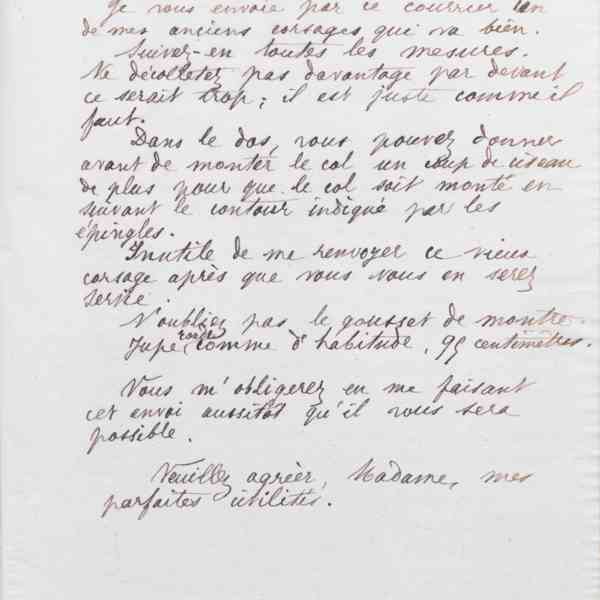 Je vous envoie par ce courrier un
de mes anciens corsages qui va bien.
Suivez-en toutes les mesures.
Ne décolletez pas davantage par devant
ce serait trop; il est juste comme il
faut.
Dans le dos, vous pouvez donner
avant de monter le col un coup de ciseau
de plus pour que le col soit monté en
suivant le contour indiqué par les
épingles.
Inutile de me renvoyer ce vieux
corsage après que vous vous en serez
servie.
N'oubliez pas le gousset de montre.
Jupe ronde, comme d'habitude, 95 centimètres.
Vous m'obligerez en me faisant
cet envoi aussitôt qu'il vous sera
possible.
Veuillez agréer, Madame, mes
parfaites civilités.